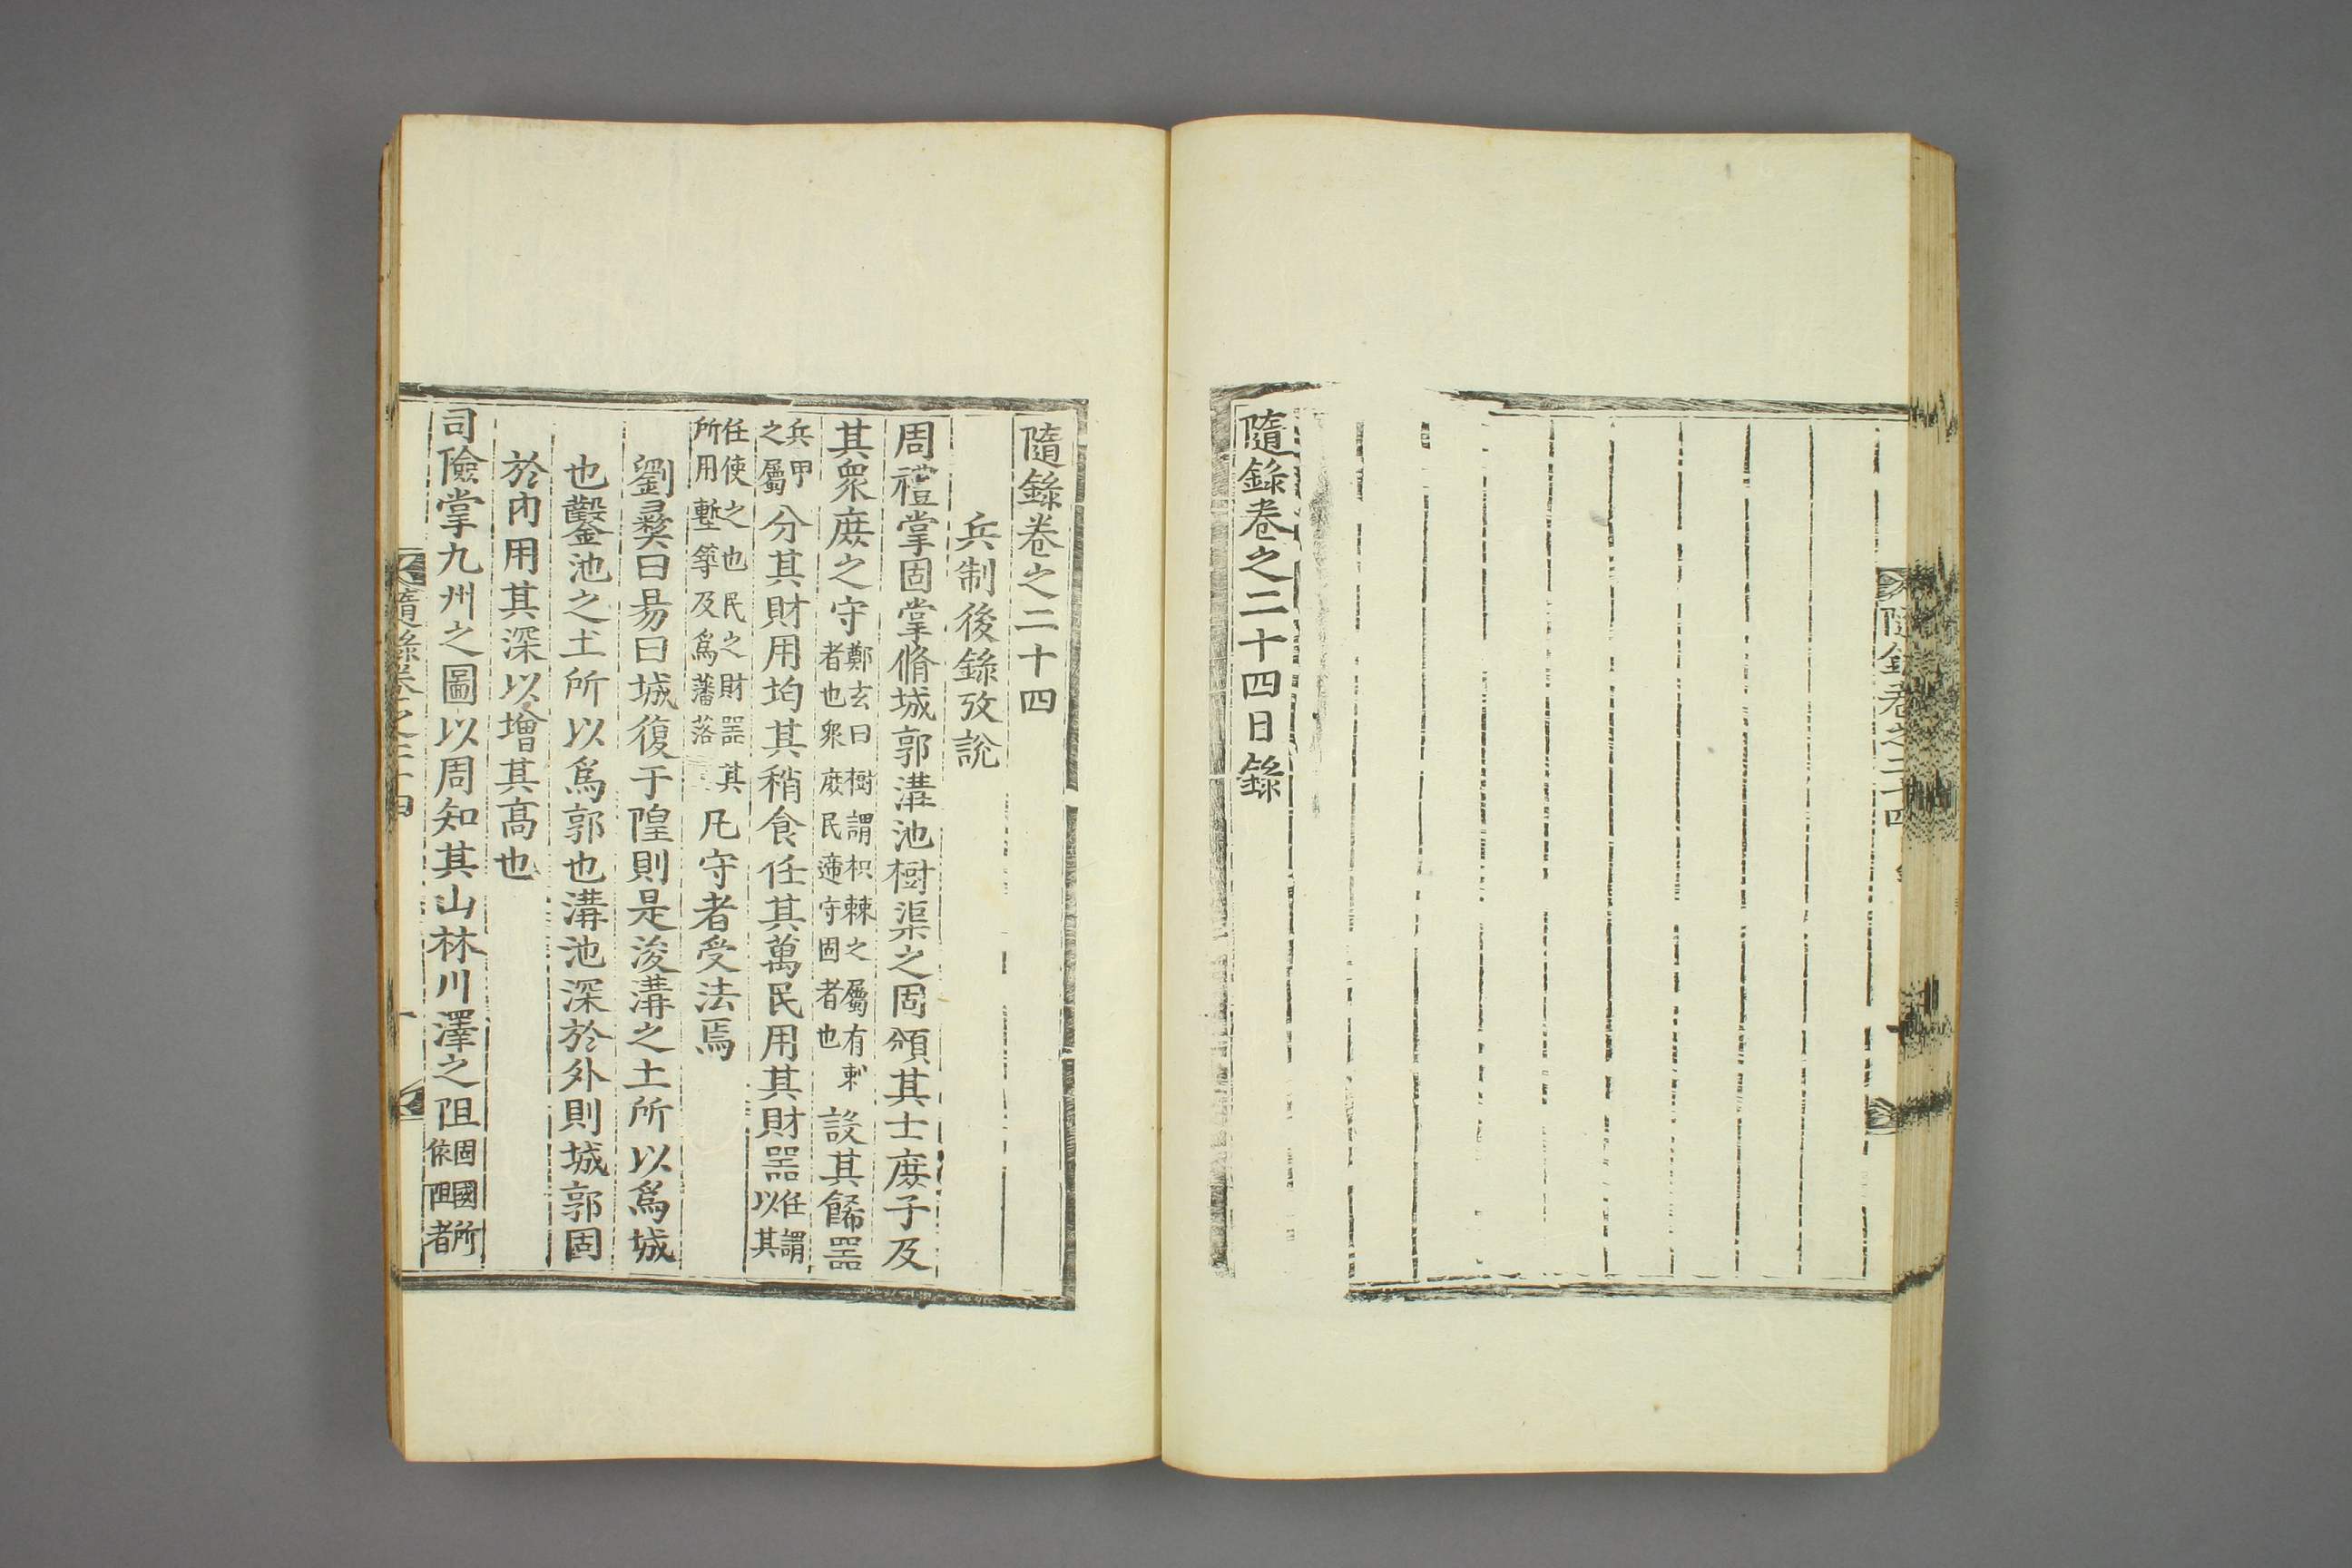 隨錄卷之二十四
隨錄卷之二十四目錄
隨錄卷之二十四
兵制後錄攷說
周禮掌固掌脩城郭溝池樹渠之固頒其士庶子及
其衆庶之守鄭玄曰樹謂枳棘之屬有刺者也衆庶民遞守固者也設其餙器
兵甲之屬分其財用均其稍食任其萬民用其財器任謂以其
任使之也民之財器其所用塹築及爲藩落凡守者受法焉
劉彝曰易曰城復于隍則是浚溝之土所以爲城
也鑿池之土所以爲郭也溝池深於外則城郭固
於內用其深以增其高也
司險掌九州之圖以周知其山林川澤之阻固國所依阻者
隨錄卷之二十四 一